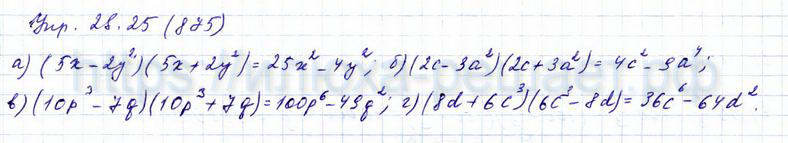 Упр. 28.25 (875)
а) (5x - 2y²)(5x + 2y²) = 25x² - 4y²; б) (2c - 3a²)(2c + 3a²) = 4c² - 9a⁴;
в) (10p³ - 7q)(10p³ + 7q) = 100p⁶ - 49q²; г) (8d + 6c³)(6c³ - 8d) = 36c⁶ - 64d².